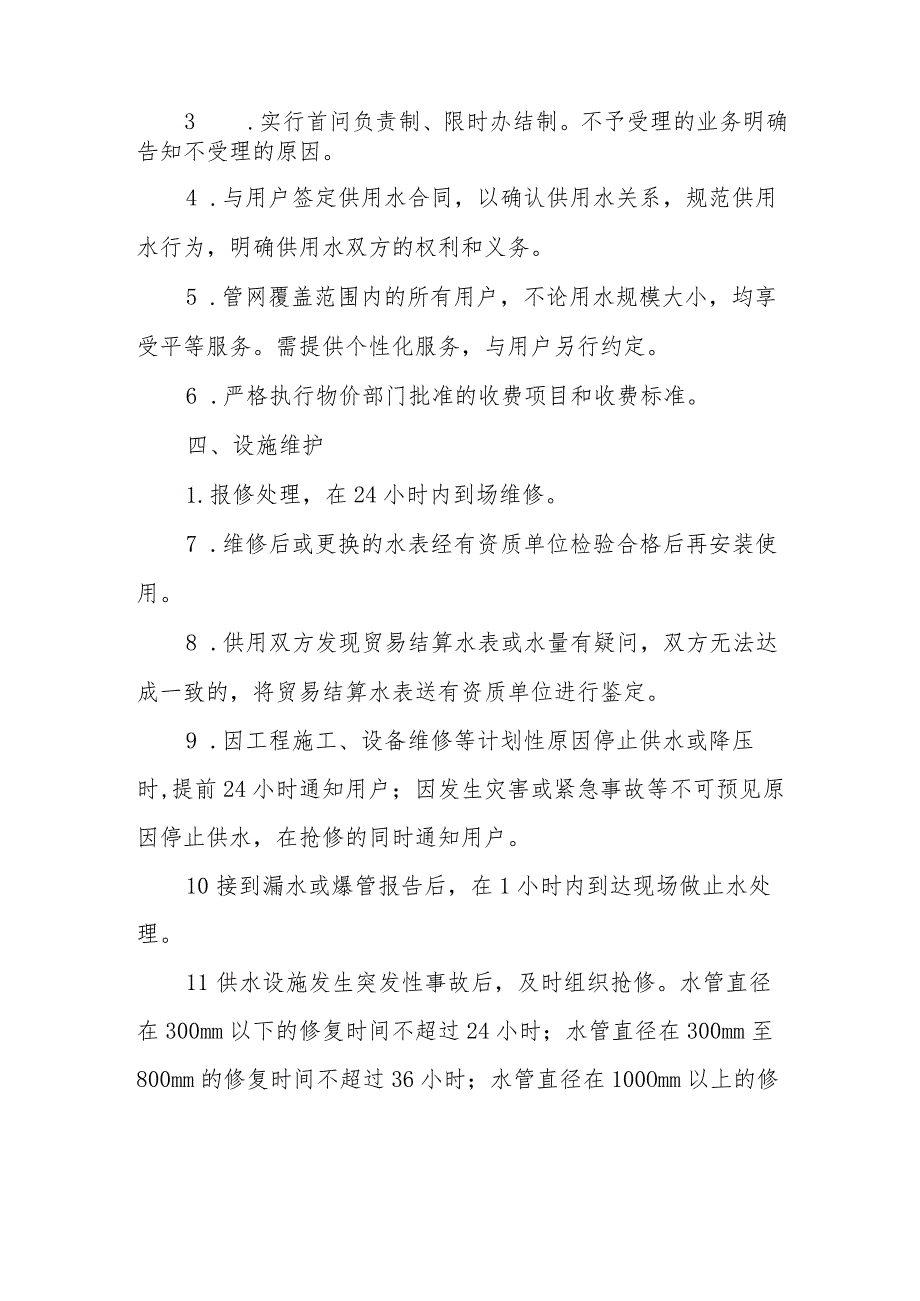 3　　.实行首问负责制、限时办结制。不予受理的业务明确
告知不受理的原因。
4 .与用户签定供用水合同，以确认供用水关系，规范供用
水行为，明确供用水双方的权利和义务。
5 .管网覆盖范围内的所有用户，不论用水规模大小，均享
受平等服务。需提供个性化服务，与用户另行约定。
6 .严格执行物价部门批准的收费项目和收费标准。
四、设施维护
1.报修处理，在 24 小时内到场维修。
7 .维修后或更换的水表经有资质单位检验合格后再安装使
用。
8 .供用双方发现贸易结算水表或水量有疑问，双方无法达
成一致的，将贸易结算水表送有资质单位进行鉴定。
9 .因工程施工、设备维修等计划性原因停止供水或降压
时,提前 24 小时通知用户；因发生灾害或紧急事故等不可预见原
因停止供水，在抢修的同时通知用户。
10 接到漏水或爆管报告后，在 1 小时内到达现场做止水处
理。
11 供水设施发生突发性事故后，及时组织抢修。水管直径
在 300mm 以下的修复时间不超过 24 小时；水管直径在 300mm 至
800mm 的修复时间不超过 36 小时；水管直径在 100Omm 以上的修